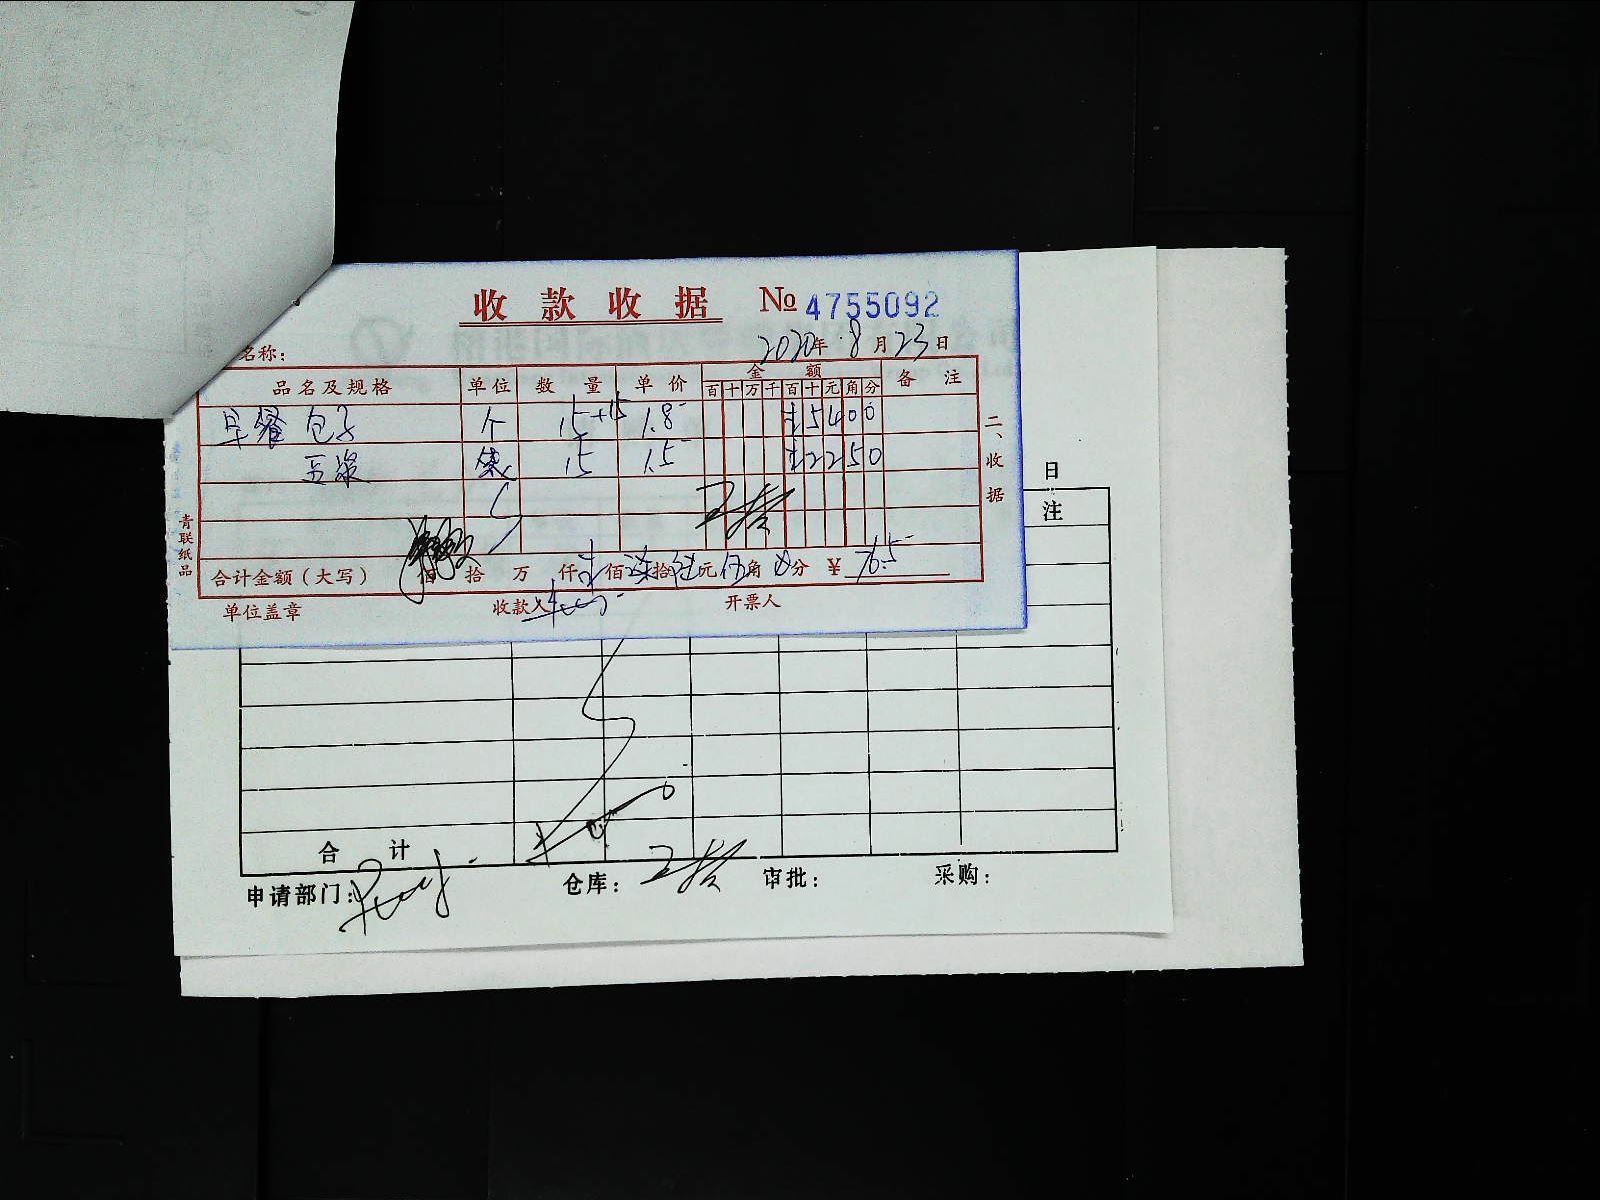 收款收据 № 4755092
名称：
2020年 8月23日
品名及规格 单位 数量 单价 金额 备注
百十万千百十元角分
早餐 包子 个 15+15 1.8 ¥5400
豆浆 袋 15 1.5 ¥2250
合计金额（大写） 佰 拾 万 仟 佰 柒拾陆元伍角 分 ¥ 76.5
单位盖章 收款人 开票人
二、收据
青联纸品
日
注
合计
申请部门： 仓库： 审批： 采购：